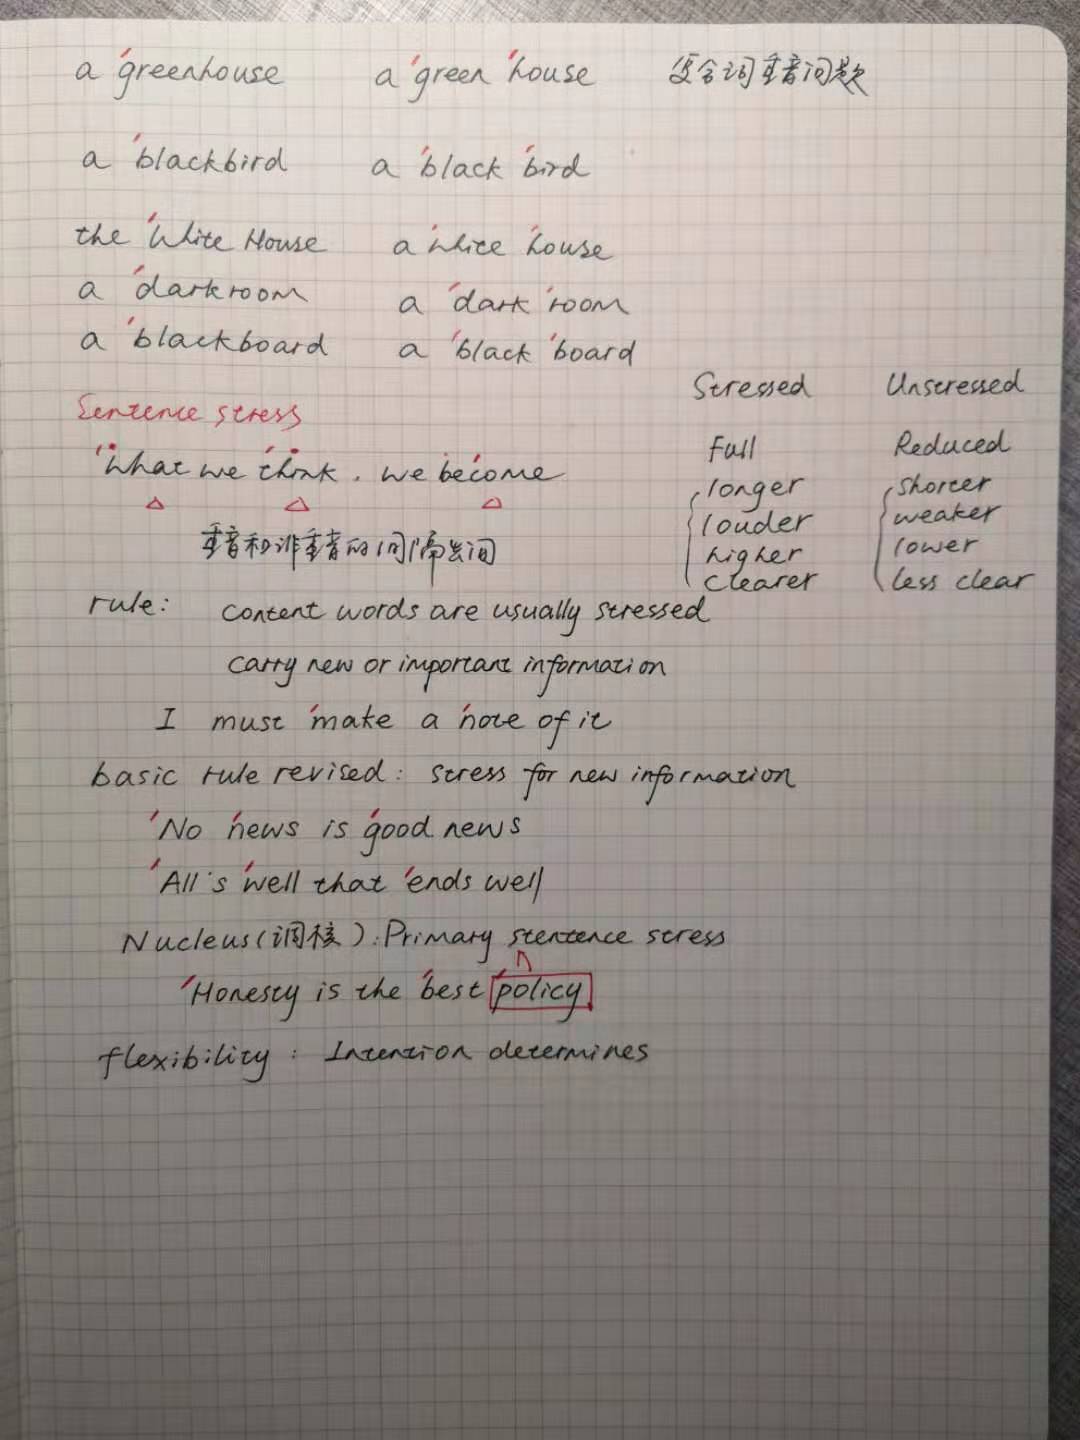 a 'greenhouse a 'green 'house 复合词重音问题
a 'blackbird a 'black 'bird
the 'White House a 'white 'house
a 'darkroom a 'dark 'room
a 'blackboard a 'black 'board
Stressed Unstressed
Sentence stress
'What we 'think, we be'come
Full Reduced
longer shorter
louder weaker
higher lower
clearer less clear
重音和非重音的间隔出现
rule: content words are usually stressed
carry new or important information
I must 'make a 'note of it
basic rule revised: stress for new information
'No 'news is 'good news
'All's 'well that 'ends well
Nucleus(调核): Primary stentence stress
'Honesty is the 'best 'policy
flexibility: Intention determines